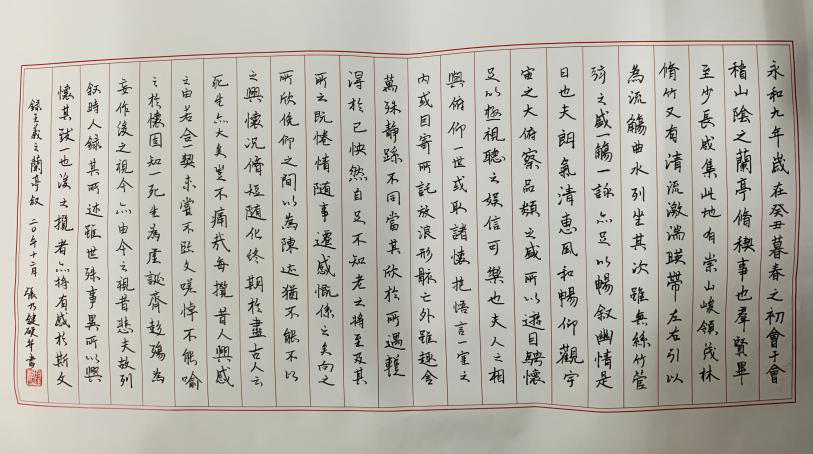 永和九年歲在癸丑暮春之初會于會
稽山陰之蘭亭脩稧事也羣賢畢
至少長咸集此地有崇山峻領茂林
脩竹又有清流激湍暎帶左右引以
為流觴曲水列坐其次雖無絲竹管
弦之盛一觴一詠亦足以暢叙幽情是
日也天朗氣清惠風和暢仰觀宇
宙之大俯察品類之盛所以遊目騁懷
足以極視聽之娛信可樂也夫人之相
與俯仰一世或取諸懷抱悟言一室之
內或因寄所託放浪形骸之外雖趣舍
萬殊靜躁不同當其欣於所遇輒
得於己怏然自足不知老之將至及其
所之既惓情隨事遷感慨係之矣向之
所欣俛仰之間以為陳迹猶不能不以
之興懷況脩短隨化終期於盡古人云
死生亦大矣豈不痛哉每攬昔人興感
之由若合一契未嘗不臨文嗟悼不能喻
之於懷固知一死生為虛誕齊彭殤為
妄作後之視今亦由今之視昔悲夫故列
叙時人錄其所述雖世殊事異所以興
懷其致一也後之攬者亦將有感於斯文
錄王羲之蘭亭叙 二〇年十二月 張乃健硬筆書